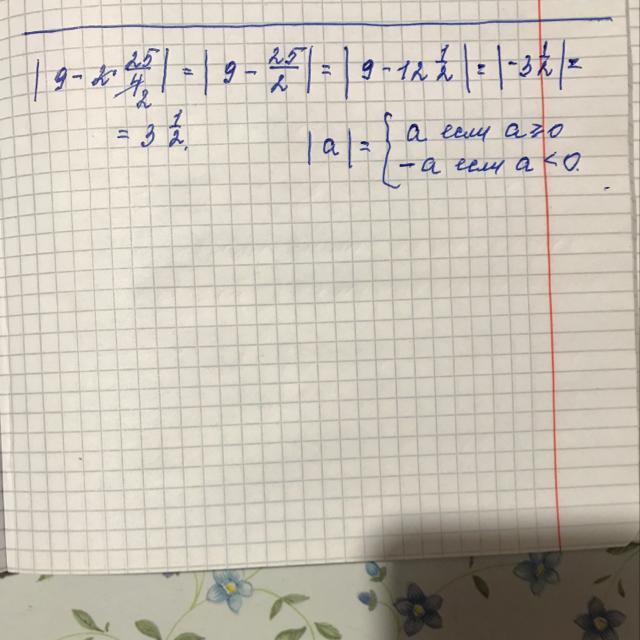 | 9 - 2 · 25/4 2 | = | 9 - 25/2 | = | 9 - 12 1/2 | = | -3 1/2 | =
= 3 1/2. |a| = { a если a ≥ 0
-a если a < 0.